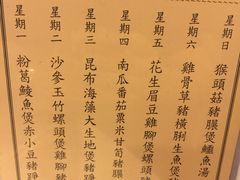 星期一
粉葛鯪魚煲赤小豆豬
星期二
沙參玉竹螺頭煲雞腳
星期三
昆布海藻大生地煲豬
星期四
南瓜番茄粟米甘筍豬
星期五
花生眉豆雞腳煲豬
星期六
雞骨草豬橫脷生魚煲
星期日
猴頭菇豬𦟌煲鱷魚湯